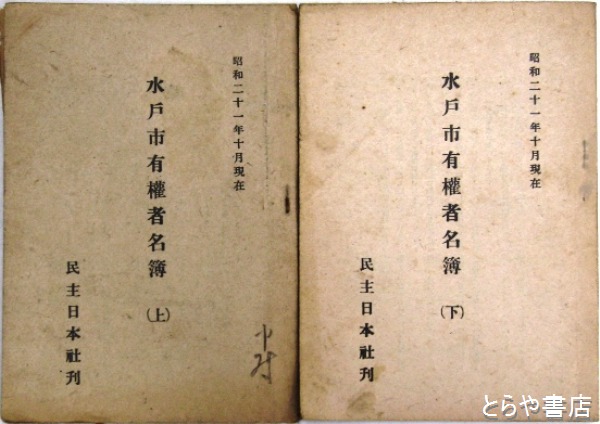 昭和二十一年十月現在
水戸市有權者名簿(上)
民主日本社刊
昭和二十一年十月現在
水戸市有權者名簿(下)
民主日本社刊
とらや書店